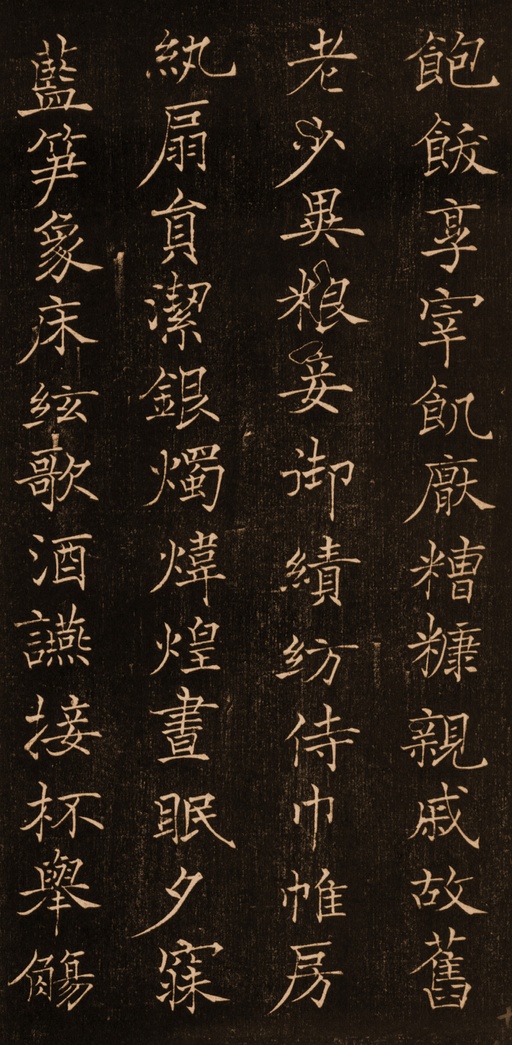 飽飫享宰飢厭糟糠親戚故舊
老少異粮妾御績紡侍巾帷房
紈扇員潔銀燭煒煌晝眠夕寐
藍笋象床絃歌酒讌接杯舉觴